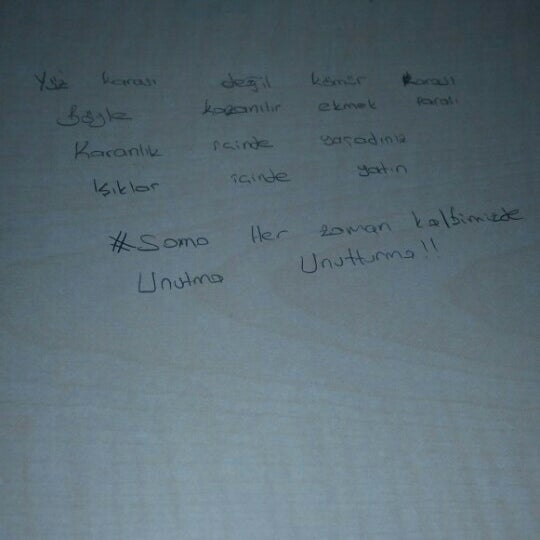 Yüz karası değil kömür karası
Böyle kazanılır ekmek parası
Karanlık içinde yaşadınız
Işıklar içinde yatın
#Soma Her zaman kalbimizde
Unutma Unutturma!!